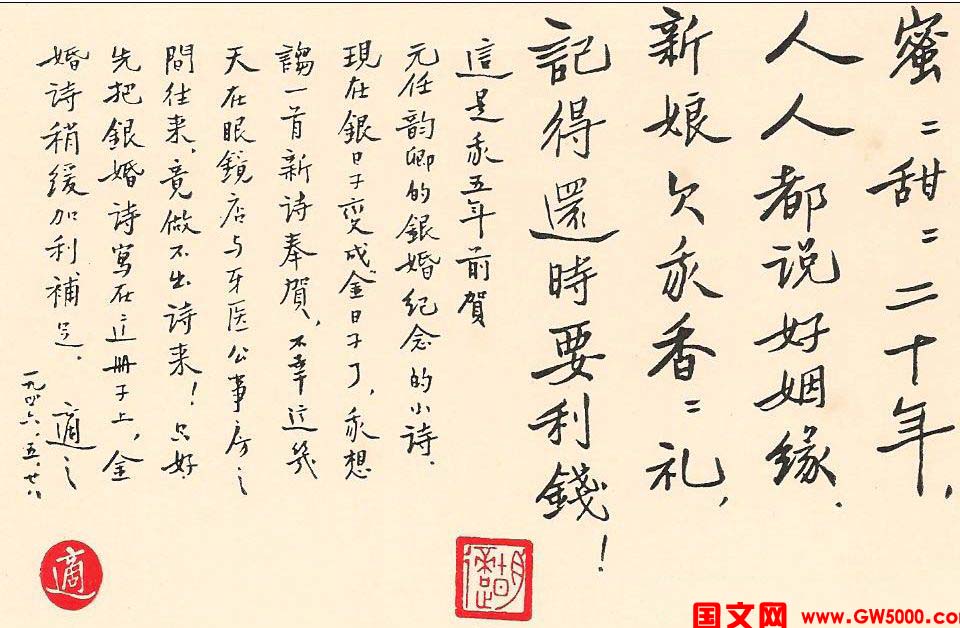 蜜〻甜〻二十年，
人人都说好姻缘．
新娘欠我香〻礼，
記得還時要利錢！
這是我五年前賀
元任韵卿的銀婚纪念的小诗．
現在銀日子变成金日子了，我想
謅一首新诗奉賀，不幸这幾
天在眼鏡店与牙医公事房之
間往来，竟做不出诗来！只好
先把銀婚诗寫在这册子上，金
婚诗稍缓加利補足．適之
一九四六．五．廿八
胡適
適
国文网 www.GW5000.com